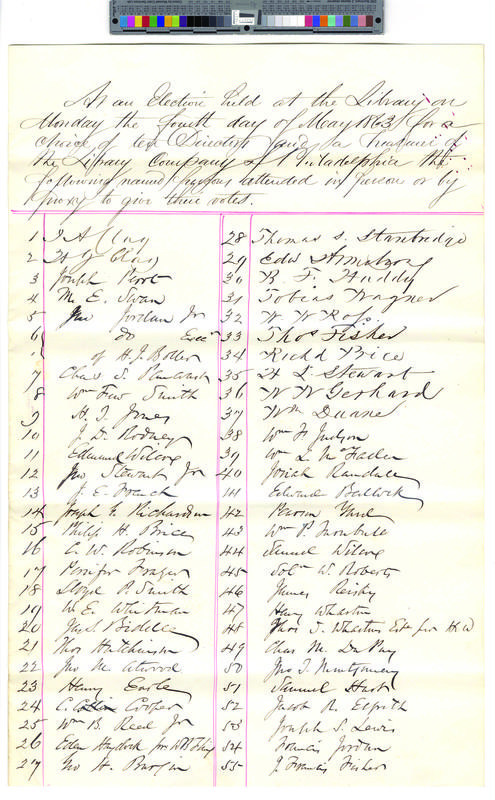 At an Election held at the Library on
Monday the fourth day of May 1863 for a
choice of ten Directors and a Treasurer of
the Library Company of Philadelphia the
following named persons attended in person or by
proxy to give their votes.
1 J A Clay
2 H G Clay
3 Joseph
4 M. E. Swan
5 Jno Jordan Jr
6 do Exec
of H. J. Boller
7 Chas S.
8 Wm Few Smith
9 H. I. Jones
10 J. D. Rodney
11 Edmund Wilcox
12 Jno Stewart Jr
13 J. E. French
14 Joseph G. Richardson
15 Philip H. Price
16 C. W. Robinson
17 Persifor Frazer
18 Lloyd P. Smith
19 W. E. Whitman
20 Jas. S. Biddle
21 Thos Hutchinson
22 Jno M. Atwood
23 Henry Earle
24 C. Cooper
25 Wm B. Reed Jr
26 Eden Haydock for
27 Jno H.
28 Thomas S. Stanbridge
29 Edw Armstrong
30 R. F. Huddy
31 Tobias Wagner
32 W. W.
33 Thos Fisher
34 Richd Price
35 H L Stewart
36 W W Gerhard
37 Wm Duane
38 Wm F Judson
39 Wm L McFadden
40 Josiah Randall
41 Edward
42 Pearson
43 Wm P.
44 Samuel Wilcox
45 Solm W. Roberts
46 James
47 Henry Wharton
48 Thos I. Wharton Este per H W
49 Chas M. Du Puy
50 Jno T. Montgomery
51 Samuel Hart
52 Jacob R. Elfreth
53 Joseph S. Lewis
54 Francis Jordan
55 J. Francis Fisher